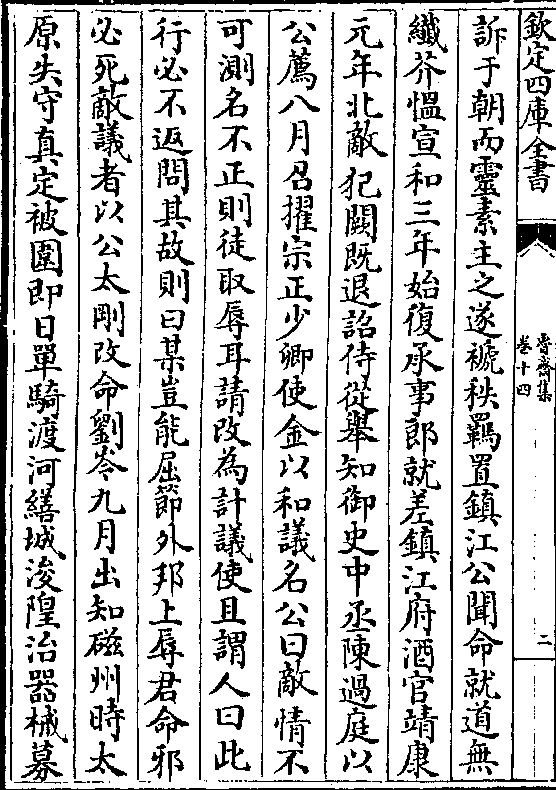 欽定四庫全書
魯齋集
卷十四
二
訴于朝而靈素主之遂褫秩羈置鎮江公聞命就道無
纖芥愠宣和三年始復承事郎就差鎮江府酒官靖康
元年北敵犯闕既退詔侍從舉知御史中丞陳過庭以
公薦八月召擢宗正少卿使金以和議名公曰敵情不
可測名不正則徒取辱耳請改為計議使且謂人曰此
行必不返問其故則曰某豈能屈節外邦上辱君命邪
必死敵議者以公太剛改命劉岑九月出知磁州時太
原失守真定被圍即日單騎渡河繕城浚隍治器械募